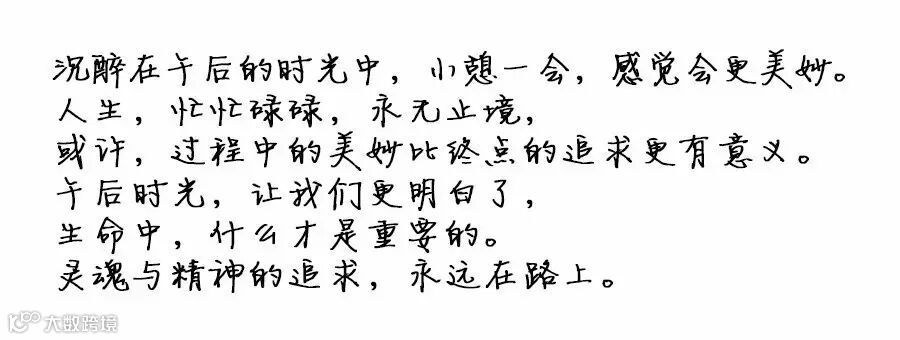 沉醉在午后的时光中，小憩一会，感觉会更美妙。
人生，忙忙碌碌，永无止境，
或许，过程中的美妙比终点的追求更有意义。
午后时光，让我们更明白了，
生命中，什么才是重要的。
灵魂与精神的追求，永远在路上。
大数跨境